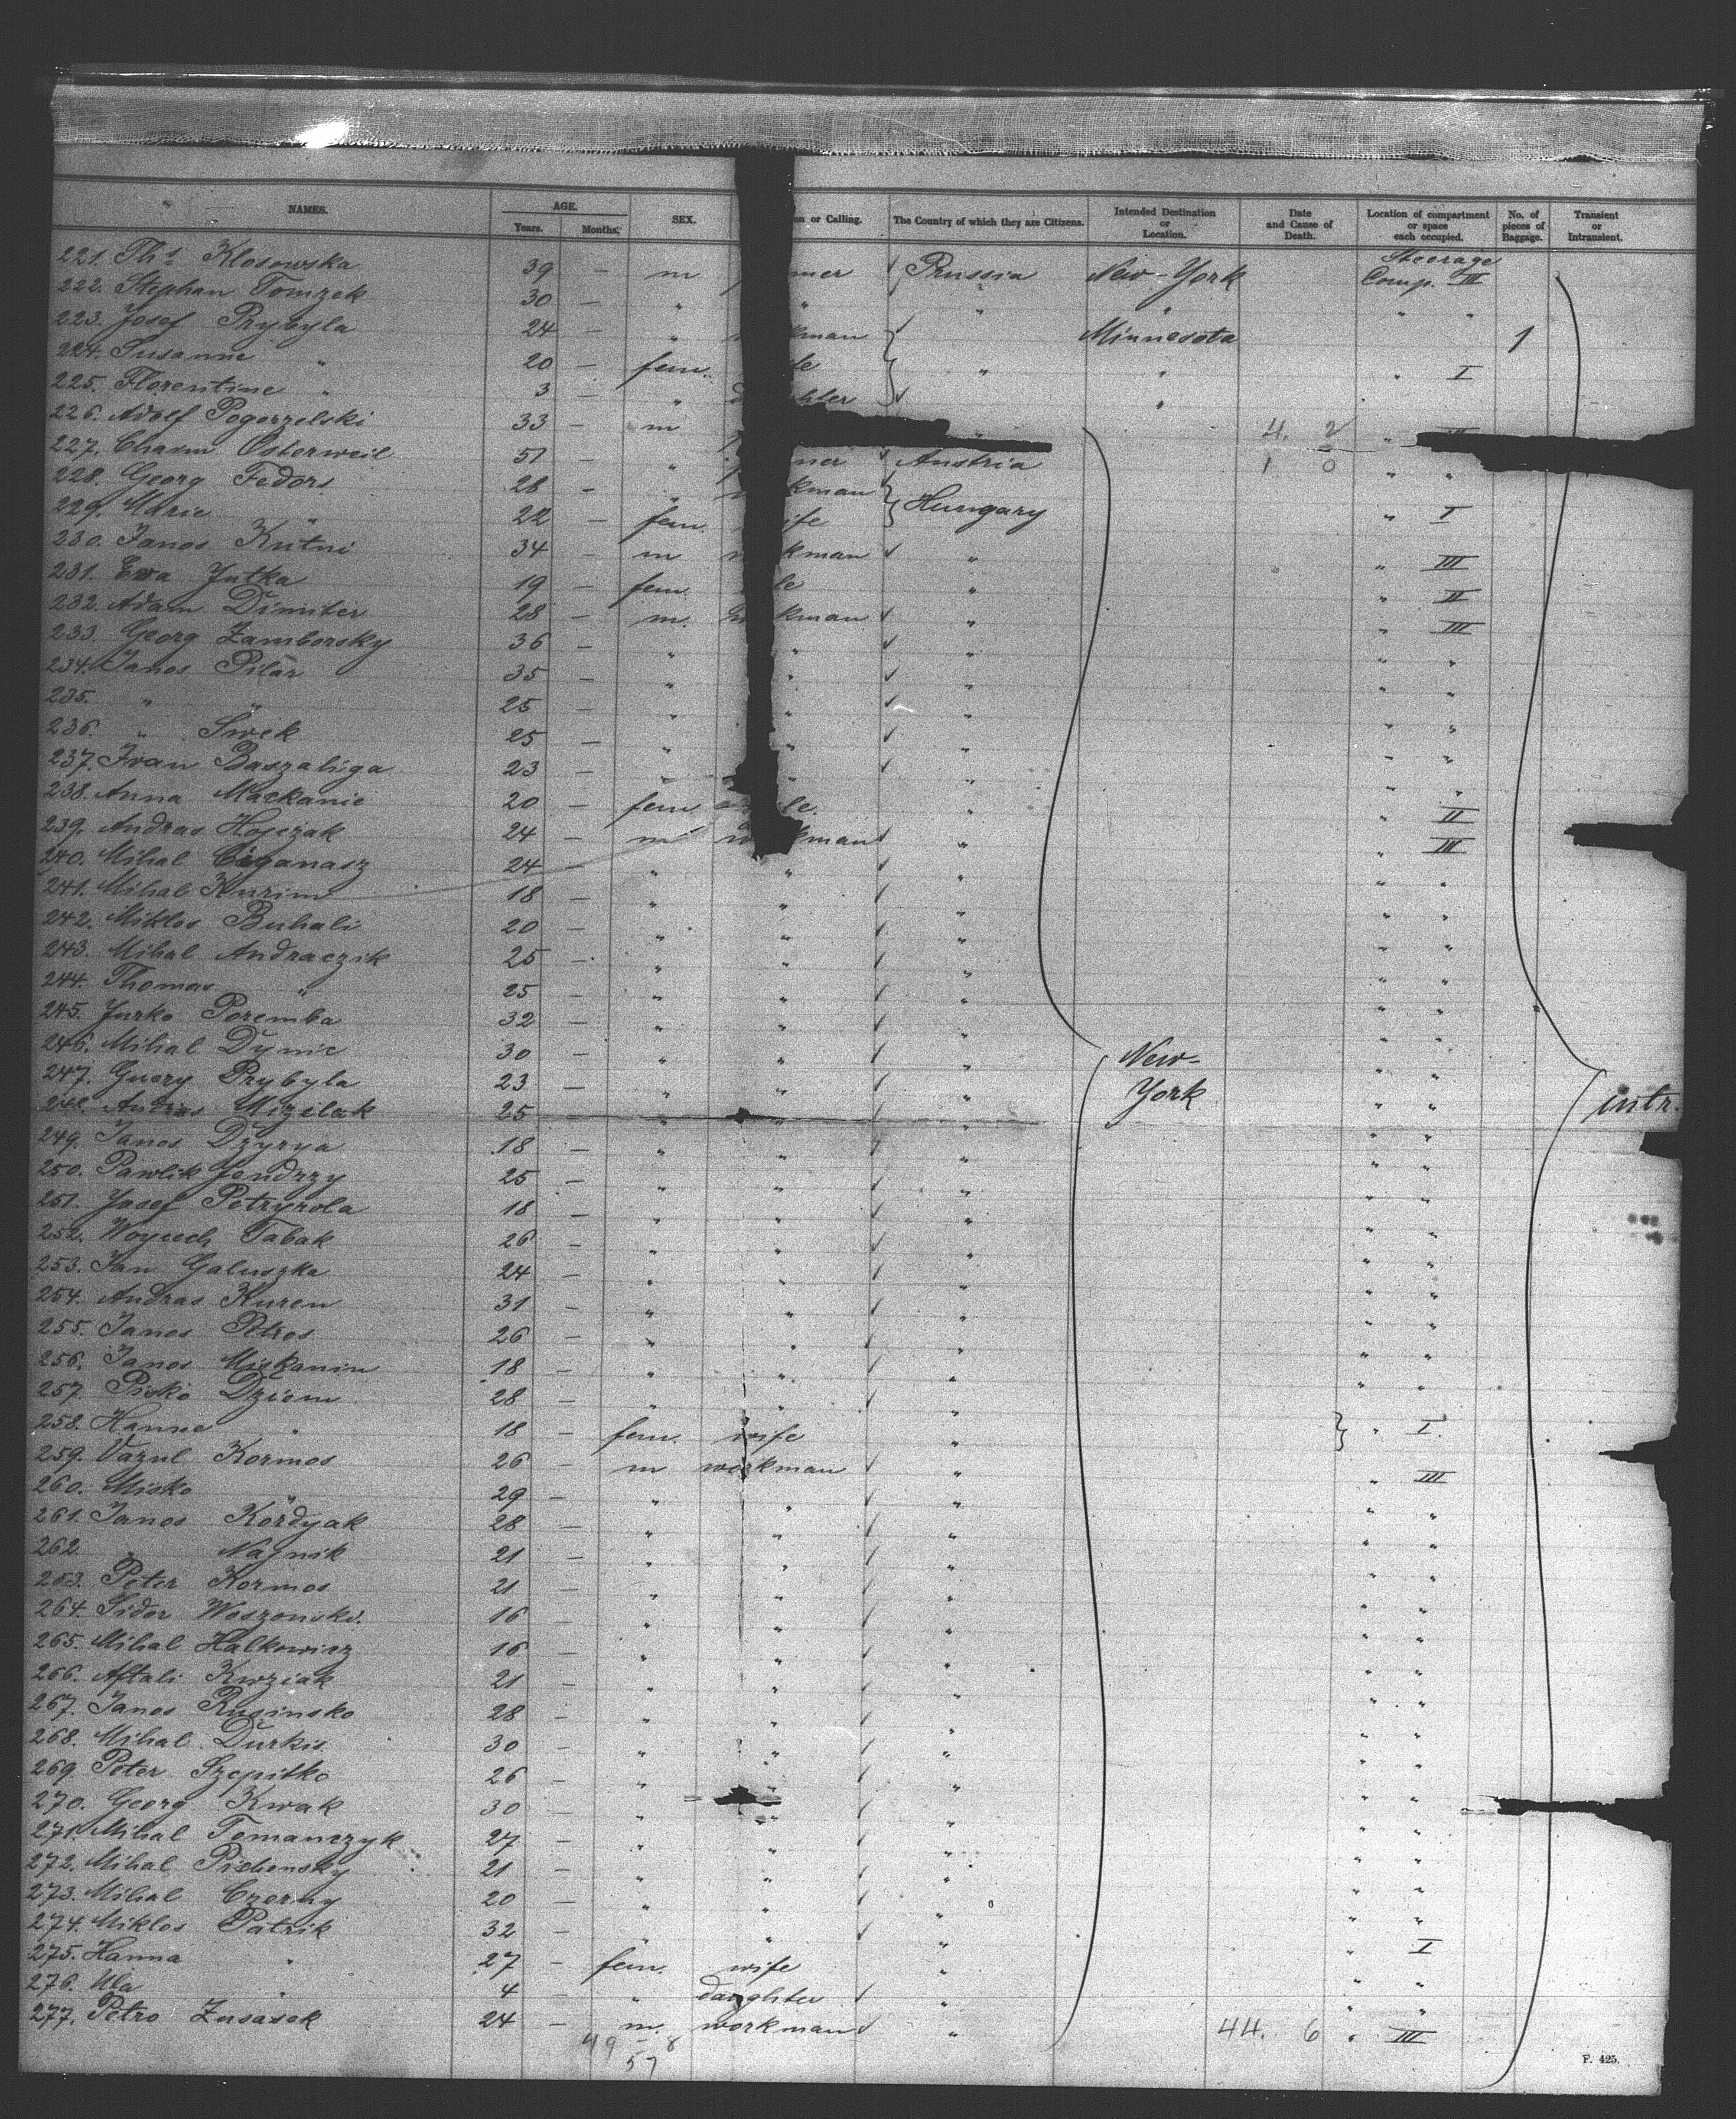 NAMES. AGE. SEX. en or Calling. The Country of which they are Citizens. Intended Destination or Location. Date and Cause of Death. Location of compartment or space each occupied. No. of pieces of Baggage. Transient or Intransient.
Years. Months.
221. Klosowska 39 — m mer ✓ Prussia New-York Steerage Comp. III
222. Stephan Tomzek 30 — " " " " " "
223. Josef Prybyla 24 — " kman Minnesota 1
224. Susanne " 20 — fem. " " " I
225. Florentine " 3 — " hter ✓ "
226. Adolf Pogorzelski 33 — m " 4. 2 "
227. Chaim Osterweil 51 — " ner ✓ Austria 1 0 " "
228. Georg Fedors 28 — " kman } Hungary
229. Marie " 22 — fem. ife " I
230. Janos Kutni 34 — m kman ✓ " " III
231. Ewa Jutka 19 — fem. le " " II
232. Adam Dimiter 28 — m. kman ✓ " " III
233. Georg Zamborsky 36 — " " ✓ " " "
234. Janos Pilar 35 — " " ✓ " " "
235. " " 25 — " " ✓ " " "
236. " Swek 25 — " " ✓ " " "
237. Ivan Baszaliga 23 — " " ✓ " " "
238. Anna Mackanic 20 — fem. le. " " II
239. Andras Hojczak 24 — m kman ✓ " " III
240. Mihal Cziganasz 24 — " " ✓ " " "
241. Mihal Kurim 18 — " " ✓ " " "
242. Miklos Buhali 20 — " " ✓ " " "
243. Mihal Andraczik 25 — " " ✓ " " "
244. Thomas " 25 — " " ✓ " " "
245. Jurko Poremba 32 — " " ✓ " " "
246. Mihal Dynic 30 — " " ✓ " New- " "
247. Guory Prybyla 23 — " " ✓ " York " "
248. Andras Mizilak 25 — " " ✓ " " " intr.
249. Janos Dzyrya 18 — " " ✓ " " "
250. Pawlik Jendrzy 25 — " " ✓ " " "
251. Josef Petryrola 18 — " " ✓ " " "
252. Woyciech Tabak 26 — " " ✓ " " "
253. Jan Galuszka 24 — " " ✓ " " "
254. Andras Kuren 31 — " " ✓ " " "
255. Janos Petros 26 — " " ✓ " " "
256. Janos Miskanin 18 — " " ✓ " " "
257. Pisko Dziem 28 — " " ✓ " " "
258. Hanne " 18 — fem. wife " } " I.
259. Vazul Kormos 26 — m workman ✓ " " III
260. Misko " 29 — " " ✓ " " "
261. Janos Kördyak 28 — " " ✓ " " "
262. " Najnik 21 — " " ✓ " " "
263. Peter Kormos 21 — " " ✓ " " "
264. Sidor Woszonski. 16 — " " ✓ " " "
265. Mihal Halkowicz 16 — " " ✓ " " "
266. Aftali Kwziak 21 — " " ✓ " " "
267. Janos Rusinsko 28 — " " ✓ " " "
268. Mihal Durkis 30 — " " ✓ " " "
269. Peter Szepitko 26 — " " ✓ " " "
270. Georg Kwak 30 — " " ✓ " " "
271. Mihal Tomanczyk 27 — " " ✓ " " "
272. Mihal Pichensky 21 — " " ✓ " " "
273. Mihal Czerny 20 — " " ✓ " " "
274. Miklos Patrik 32 — " " ✓ " " "
275. Hanna " 27 — fem. wife " " I
276. Ula " 4 — " daughter ✓ " " "
277. Petro Zusasek 24 — m. workman ✓ " 44. 6 " III
49 - 8
57
F. 425.